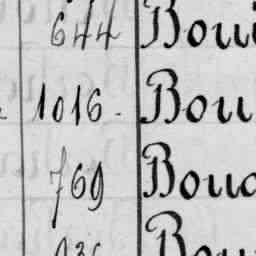 644 Boui
1016. Bou
769 Bouc
936 Bou